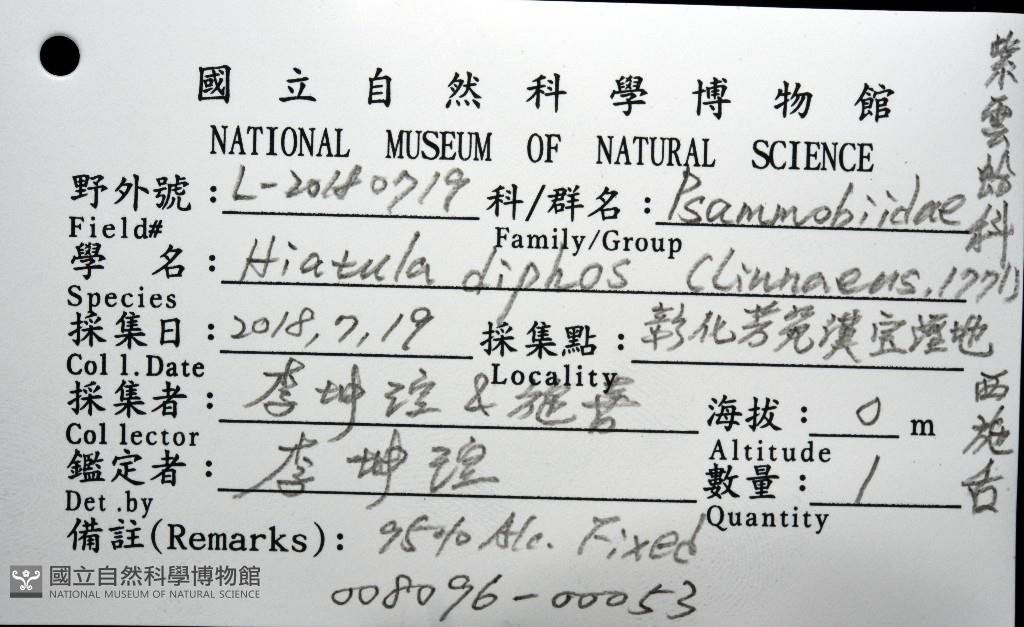 國立自然科學博物館
NATIONAL MUSEUM OF NATURAL SCIENCE
野外號：L-20180719 科/群名：Psammobiidae
Field# Family/Group
學名：Hiatula diphos (Linnaeus, 1771)
Species
採集日：2018,7,19 採集點：彰化芳苑漢宝溼地
Coll.Date Locality
採集者：李坤瑄 & 施 海拔：0 m
Collector Altitude
鑑定者：李坤瑄 數量：1
Det.by Quantity
備註(Remarks)：95% Alc. Fixed
008096-00053
紫雲蛤科
西施舌
國立自然科學博物館
NATIONAL MUSEUM OF NATURAL SCIENCE